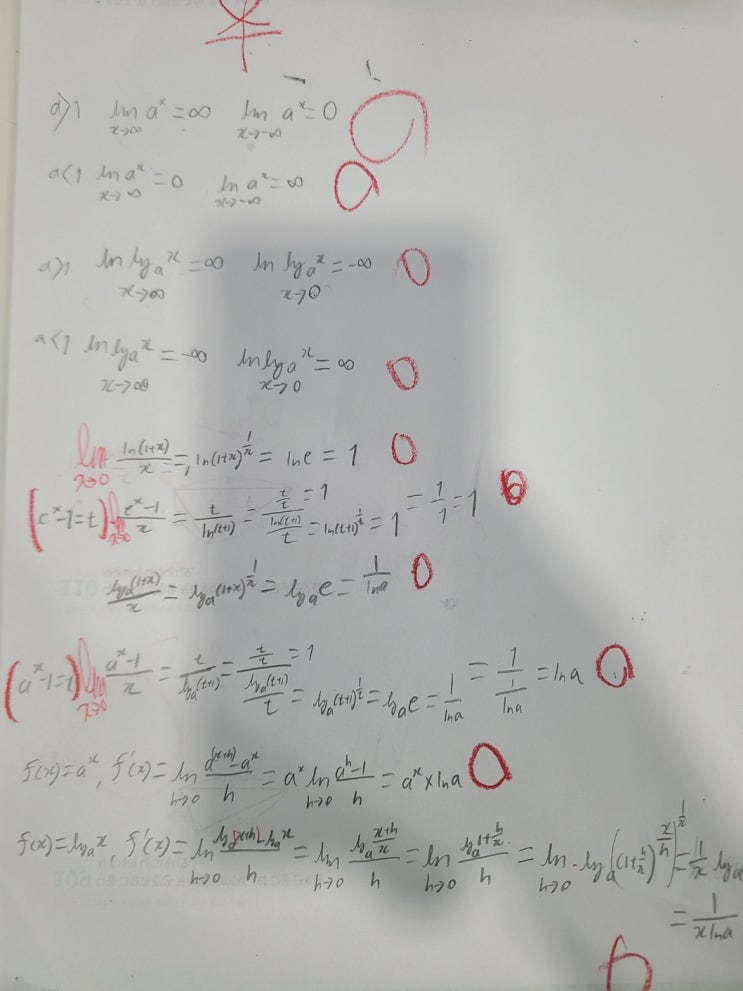 a>1 lim x→∞ a^x = ∞ lim x→-∞ a^x = 0
a<1 lim x→∞ a^x = 0 lim x→-∞ a^x = ∞
a>1 lim x→∞ log_a x = ∞ lim x→0 log_a x = -∞
a<1 lim x→∞ log_a x = -∞ lim x→0 log_a x = ∞
lim x→0 ln(1+x)/x = ln(1+x)^(1/x) = ln e = 1
(e^x-1=t) lim x→0 (e^x-1)/x = t/ln(t+1) = (t/t = 1)/(ln(t+1)/t = ln(t+1)^(1/t) = 1) = 1/1 = 1
log_a(1+x)/x = log_a(1+x)^(1/x) = log_a e = 1/ln a
(a^x-1=t) lim x→0 (a^x-1)/x = t/log_a(t+1) = (t/t = 1)/(log_a(t+1)/t = log_a(t+1)^(1/t) = log_a e = 1/ln a) = 1/(1/ln a) = ln a
f(x)=a^x, f'(x) = lim h→0 (a^(x+h)-a^x)/h = a^x lim h→0 (a^h-1)/h = a^x × ln a
f(x)=log_a x f'(x) = lim h→0 (log_a x+h - log_a x)/h = lim h→0 (log_a (x+h)/x)/h = lim h→0 (log_a 1+h/x)/h = lim h→0 log_a((1+h/x)^(x/h))^(1/x) = 1/x log_a
= 1/(x ln a)